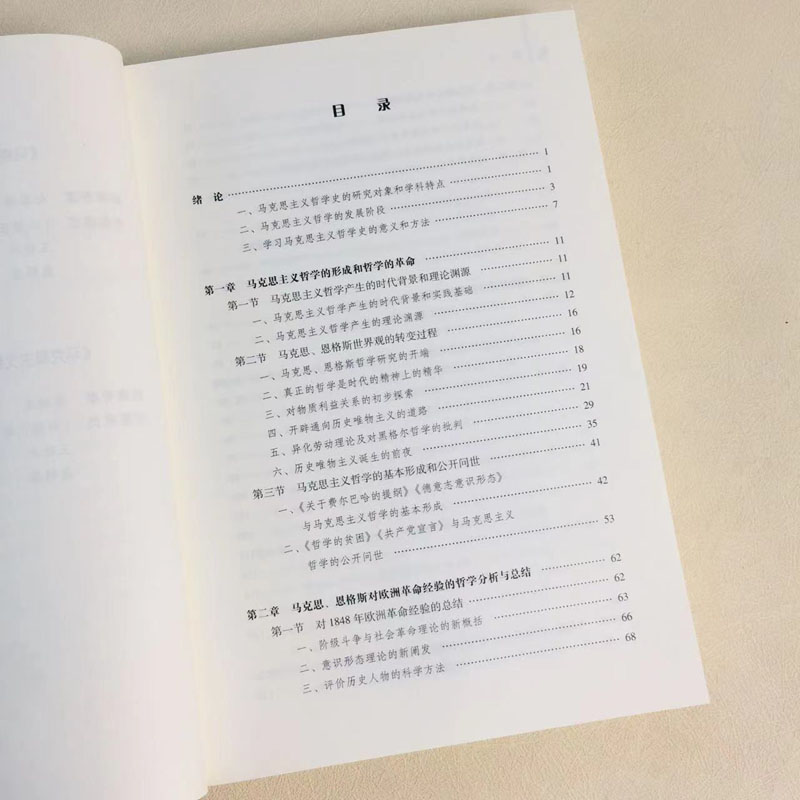 目 录
绪 论 1
一、马克思主义哲学史的研究对象和学科特点 1
二、马克思主义哲学的发展阶段 3
三、学习马克思主义哲学史的意义和方法 7
第一章 马克思主义哲学的形成和哲学的革命 11
第一节 马克思主义哲学产生的时代背景和理论渊源 11
一、马克思主义哲学产生的时代背景和实践基础 11
二、马克思主义哲学产生的理论渊源 12
第二节 马克思、恩格斯世界观的转变过程 16
一、马克思、恩格斯哲学研究的开端 16
二、真正的哲学是时代的精神上的精华 18
三、对物质利益关系的初步探索 19
四、开辟通向历史唯物主义的道路 21
五、异化劳动理论及对黑格尔哲学的批判 29
六、历史唯物主义诞生的前夜 35
第三节 马克思主义哲学的基本形成和公开问世 41
一、《关于费尔巴哈的提纲》《德意志意识形态》
与马克思主义哲学的基本形成 42
二、《哲学的贫困》《共产党宣言》与马克思主义
哲学的公开问世 53
第二章 马克思、恩格斯对欧洲革命经验的哲学分析与总结 62
第一节 对1848年欧洲革命经验的总结 62
一、阶级斗争与社会革命理论的新概括 63
二、意识形态理论的新阐发 66
三、评价历史人物的科学方法 68